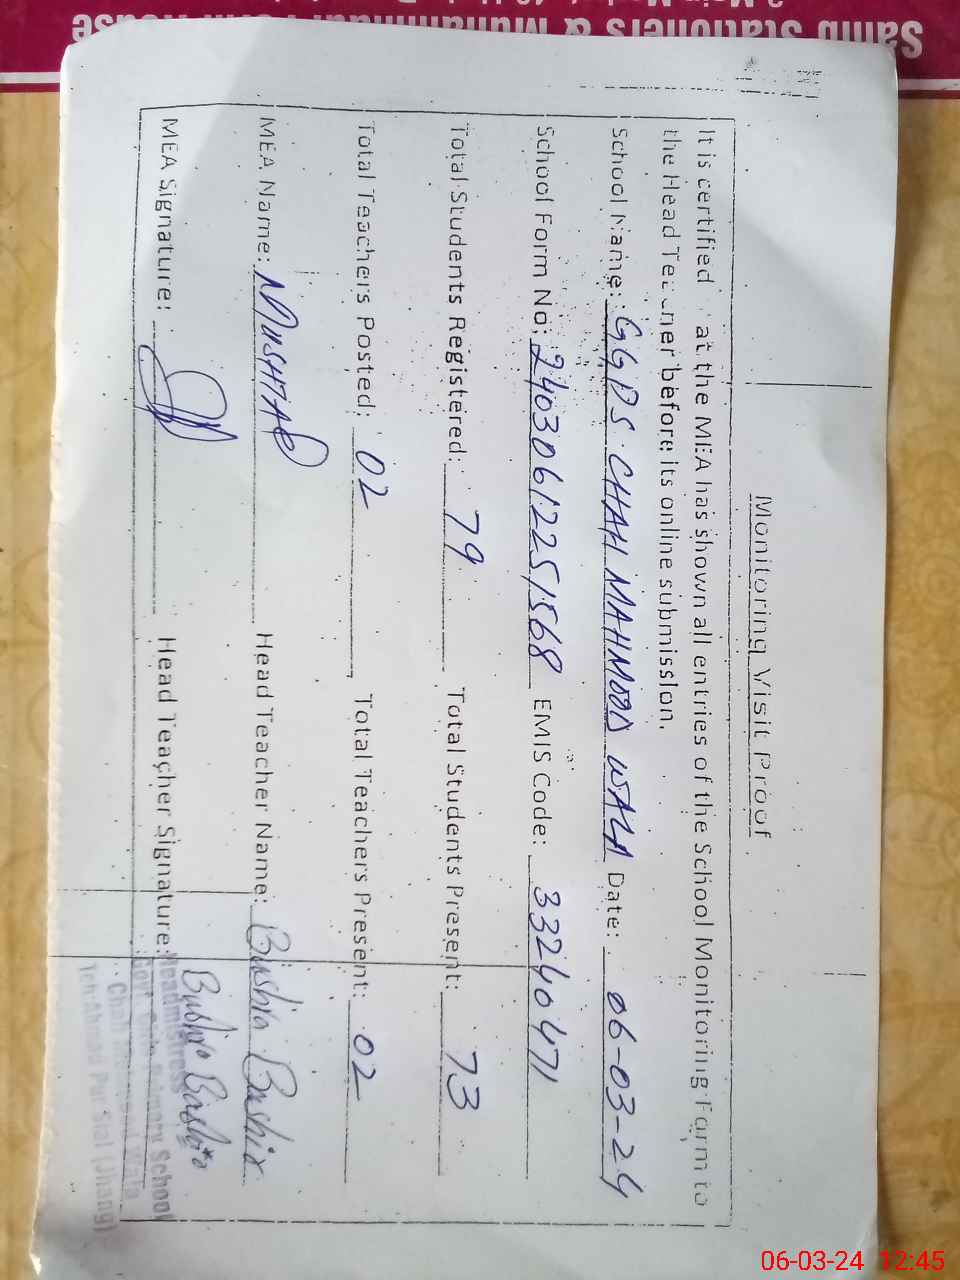 Monitoring Visit Proof
It is certified at the MEA has shown all entries of the School Monitoring Form to
the Head Teacher before its online submission.
School Name: GGPS CHAH MAHMOOD WALA Date: 06-03-24
School Form No: 24030612251568 EMIS Code: 33240471
Total Students Registered: 79 Total Students Present: 73
Total Teachers Posted: 02 Total Teachers Present: 02
MEA Name: MUSHTAQ Head Teacher Name: Bushra Bushra
MEA Signature: Head Teacher Signature: Bushra
Headmistress
Govt. Girls Primary School
Chah Mahmood Wala
Teh: Ahmad Pur Sial (Jhang)
Stationers &
06-03-24 12:45